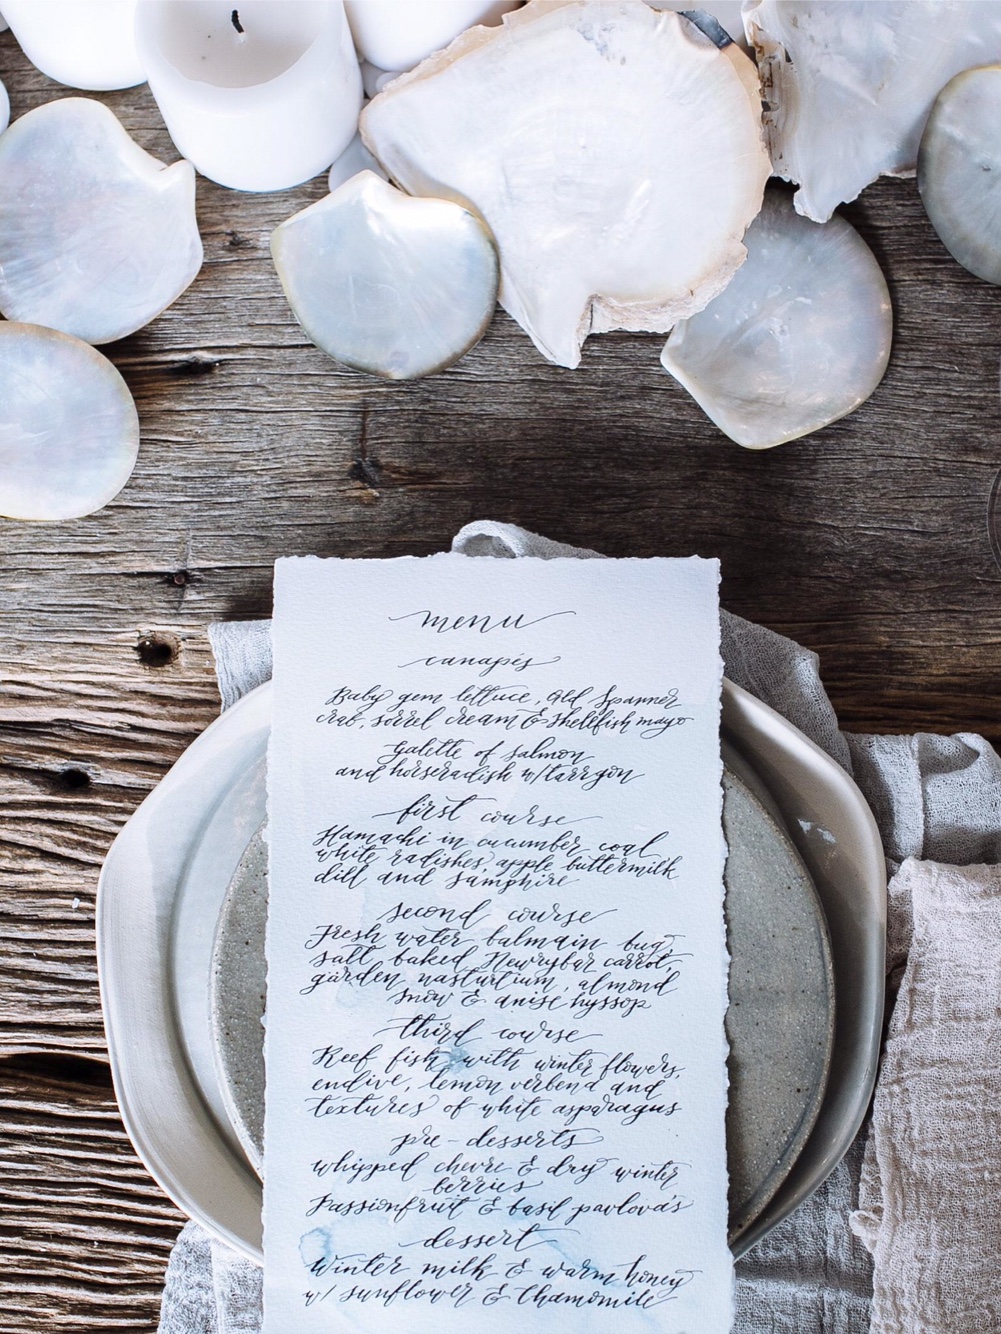 menu
canapés
Baby gem lettuce, and Spanner
crab, sorrel cream & shellfish mayo
Galette of salmon
and horseradish w/tarrgon
first course
Hamachi in cucumber, coal
white radishes, apple buttermilk
dill and samphire
second course
Fresh water balmain bug,
salt baked Newrybar carrot,
garden nasturtium, almond
snow & anise hyssop
third course
Reef fish with winter flowers,
endive, lemon verbena and
textures of white asparagus
pre-desserts
whipped chevre & dry winter
berries
Passionfruit & basil pavlova's
dessert
Winter milk & warm honey
w/ sunflower & Chamomile